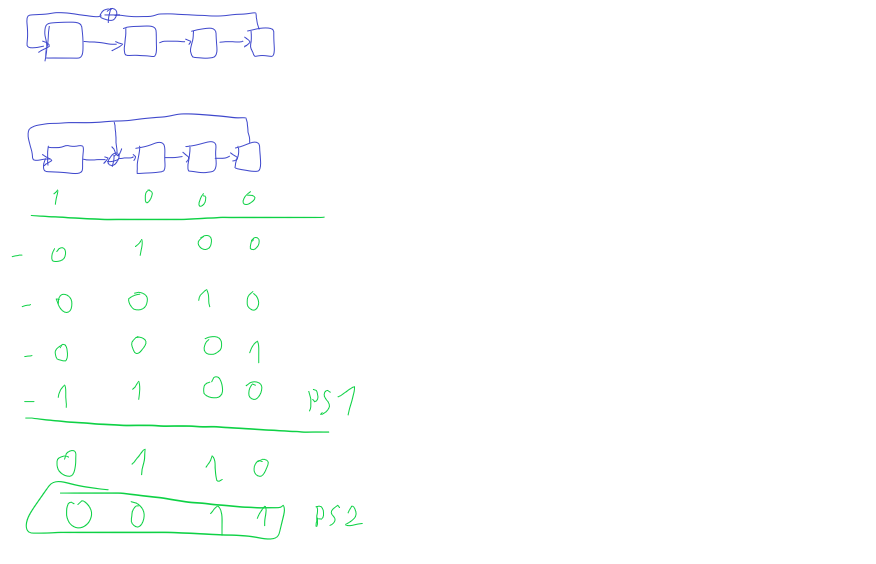 1 0 0 0
- 0 1 0 0
- 0 0 1 0
- 0 0 0 1
- 1 1 0 0 PS1
0 1 1 0
0 0 1 1 PS2